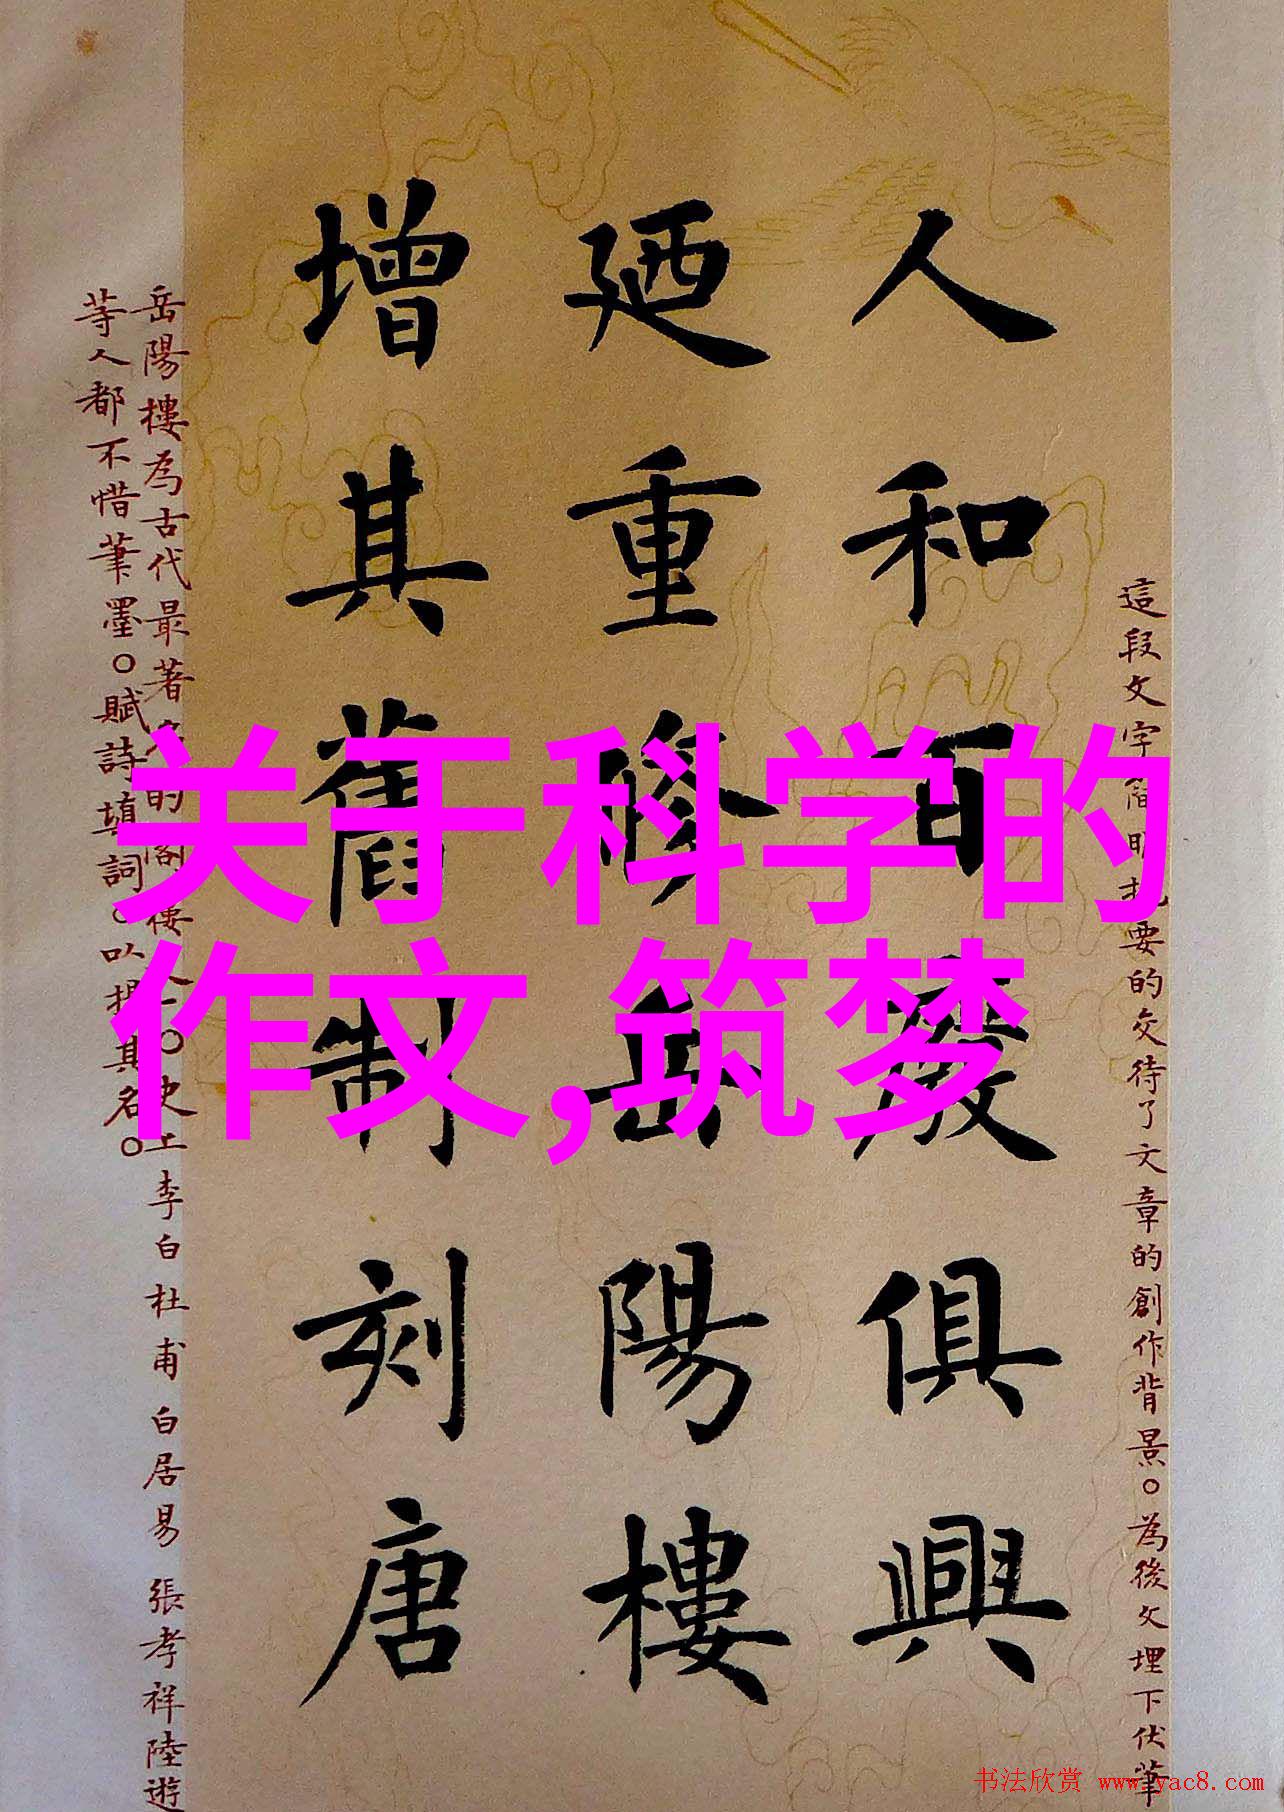 人和百廢俱興
廼重修岳陽樓
增其舊制刻唐
這段文字簡明扼要的交待了文章的創作背景。為後文埋下伏筆
岳陽樓為古代最著名的閣樓
史上李白杜甫白居易張孝祥陸遊
等人都不惜筆墨。賦詩填詞。以揚其名。
关于科学的
作文,筑梦
书法欣赏 www.yac8.com